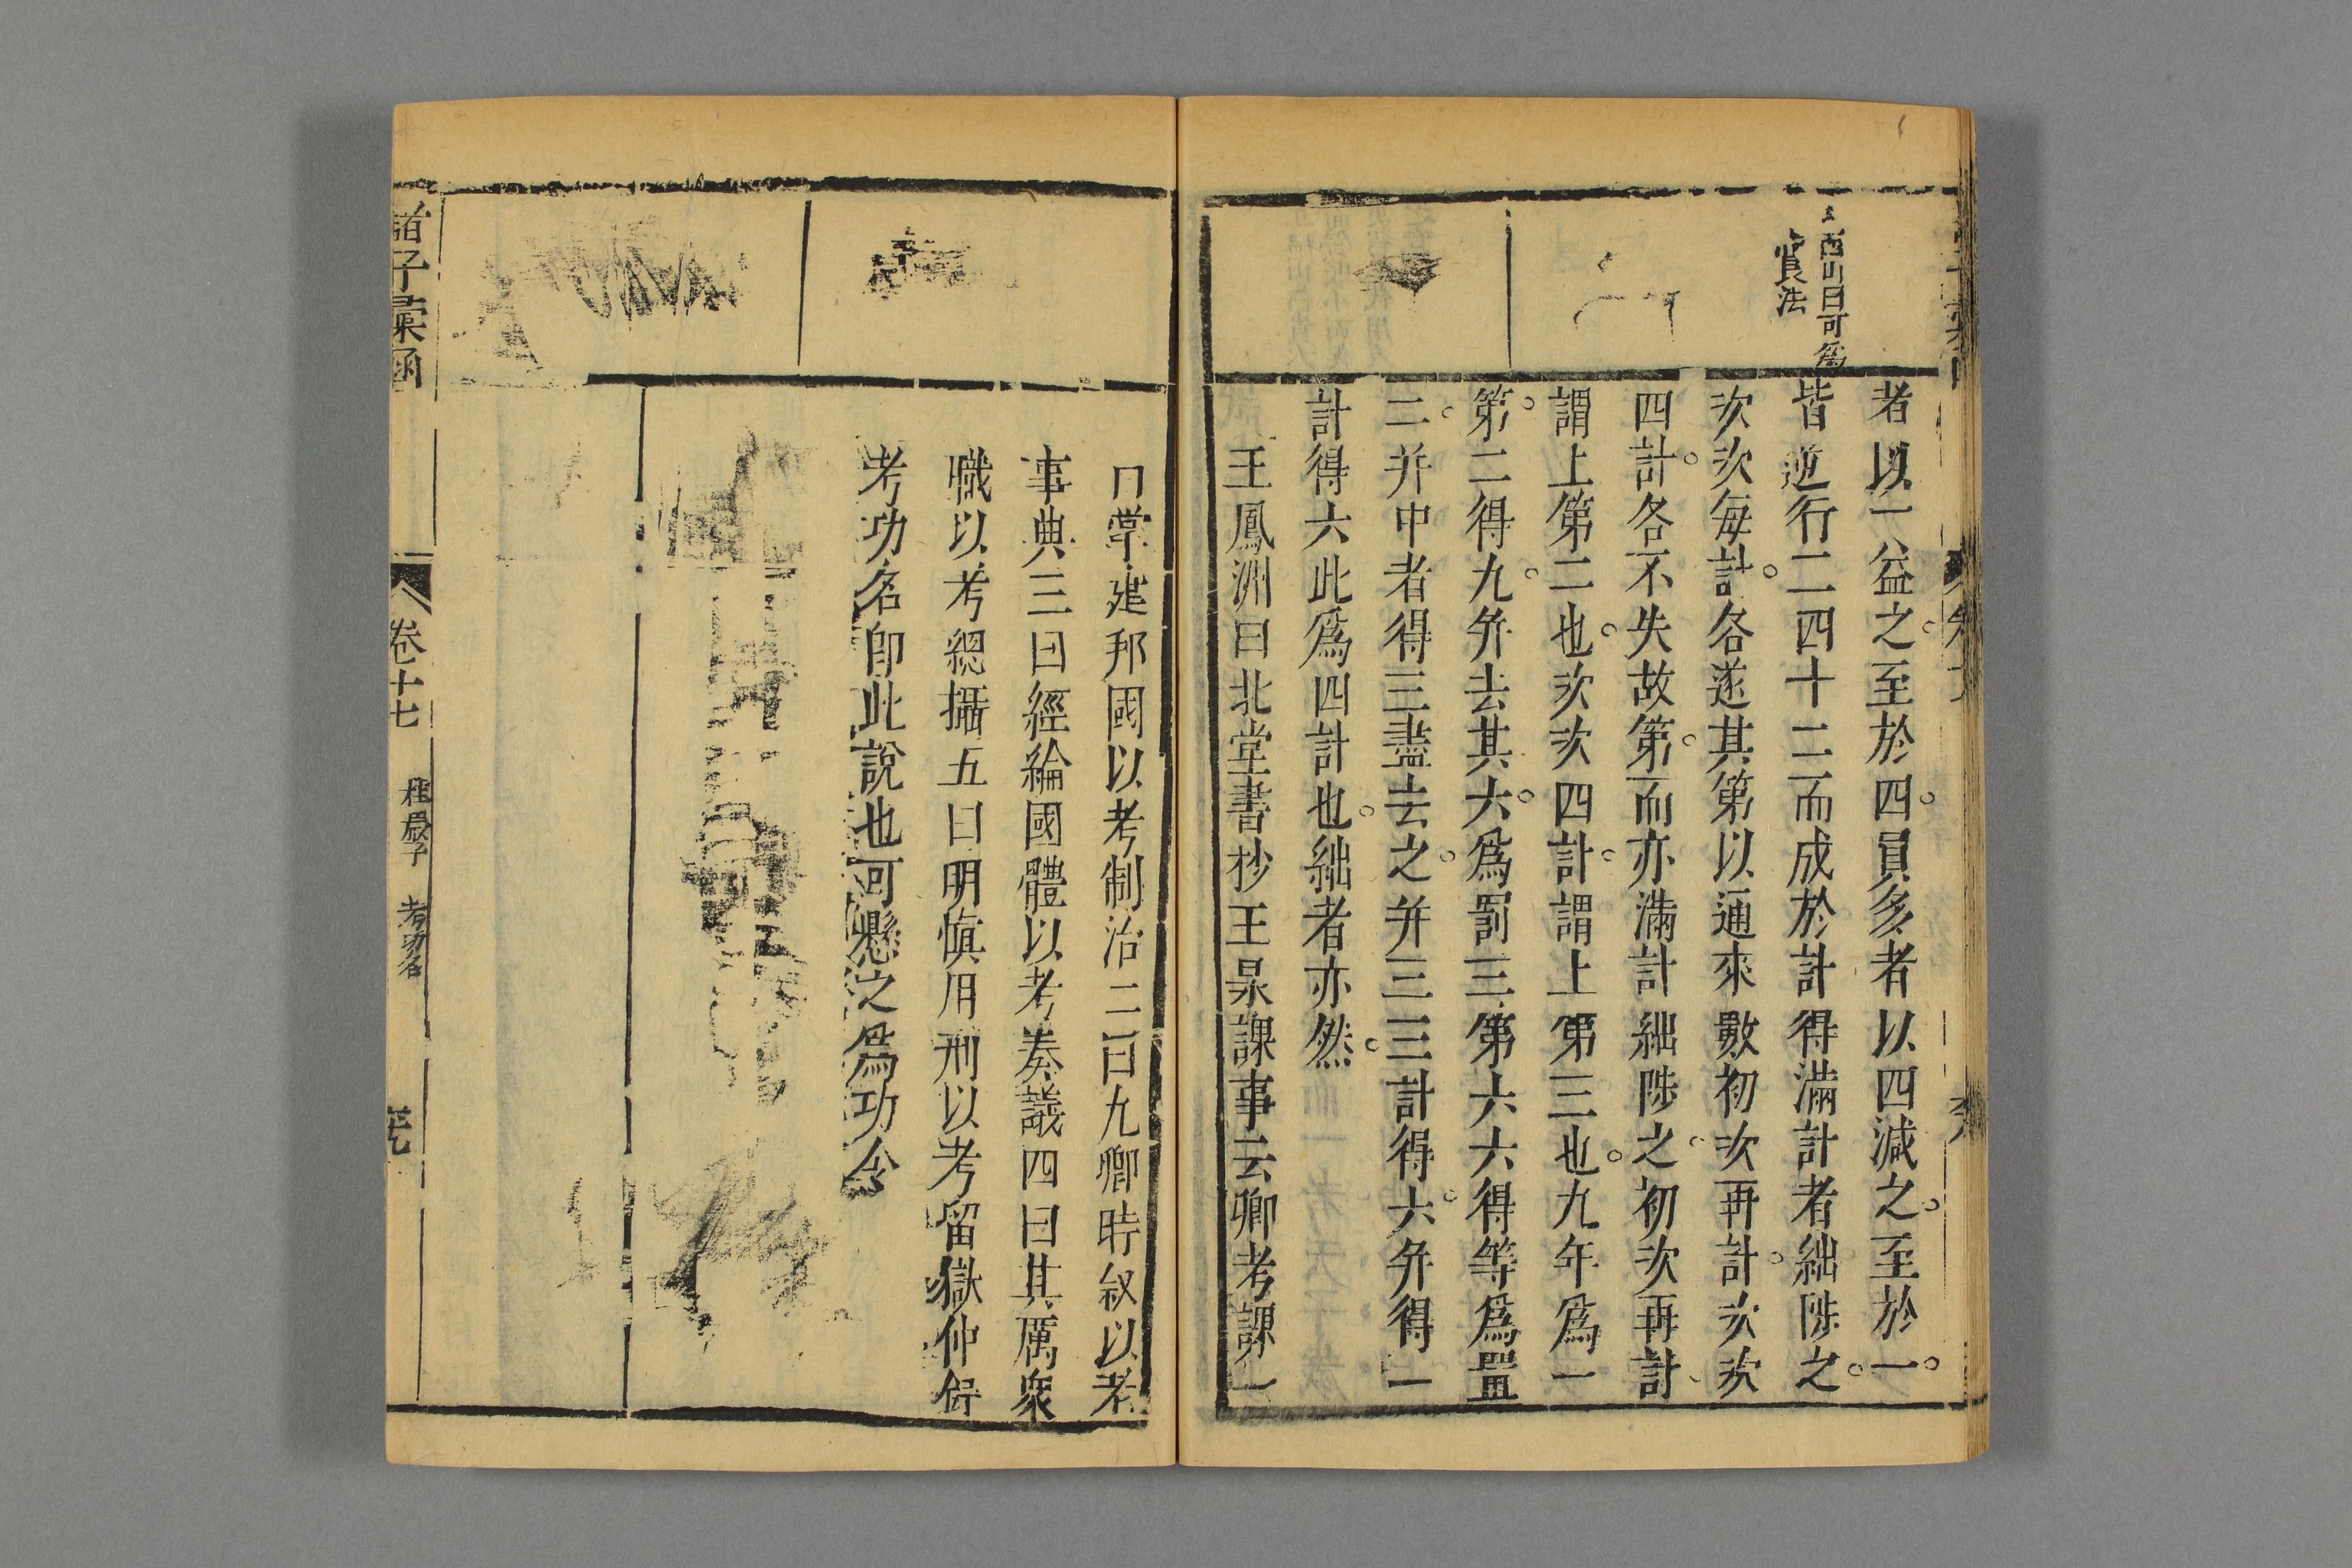 西山曰可爲
賞法
者以一益之至於四員多者以四減之至於一
皆逆行二四十二而成於計得滿計者絀陟之
次次每計各遂其第以通來數初次再計次次
四計各不失故第而亦滿計絀陟之初次再計
謂上第二也次次四計謂上第三也九年爲一
第二得九并去其六爲罰三第六六得等爲置
二并中者得三盡去之并三三計得六并得一
計得六此爲四計也絀者亦然
王鳳洲曰北堂書抄王杲課事云卿考課一
曰掌建邦國以考制治二曰九卿時叙以考
事典三曰經綸國體以考奏議四曰其厲衆
職以考總攝五曰明慎用刑以考留獄仲舒
考功名卽此說也可懸之爲功令
諸子彙函
卷十七
桂巖子 考功名